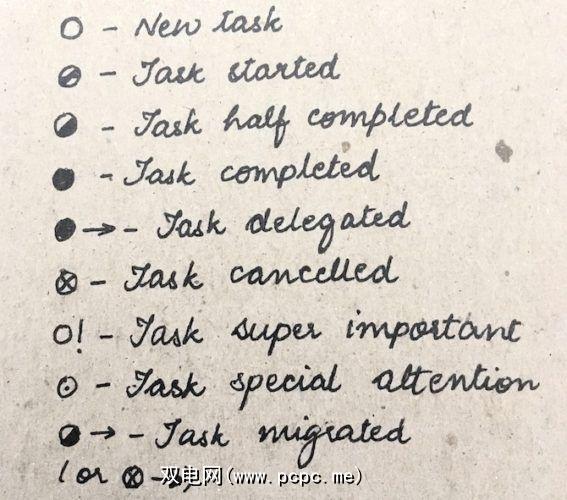 ○ - New task
⊘ - Task started
◑ - Task half completed
● - Task completed
●→ - Task delegated
⊗ - Task cancelled
○! - Task super important
⊙ - Task special attention
◑→ - Task migrated
/ or ⊗→
双电网(www.pcpc.me)